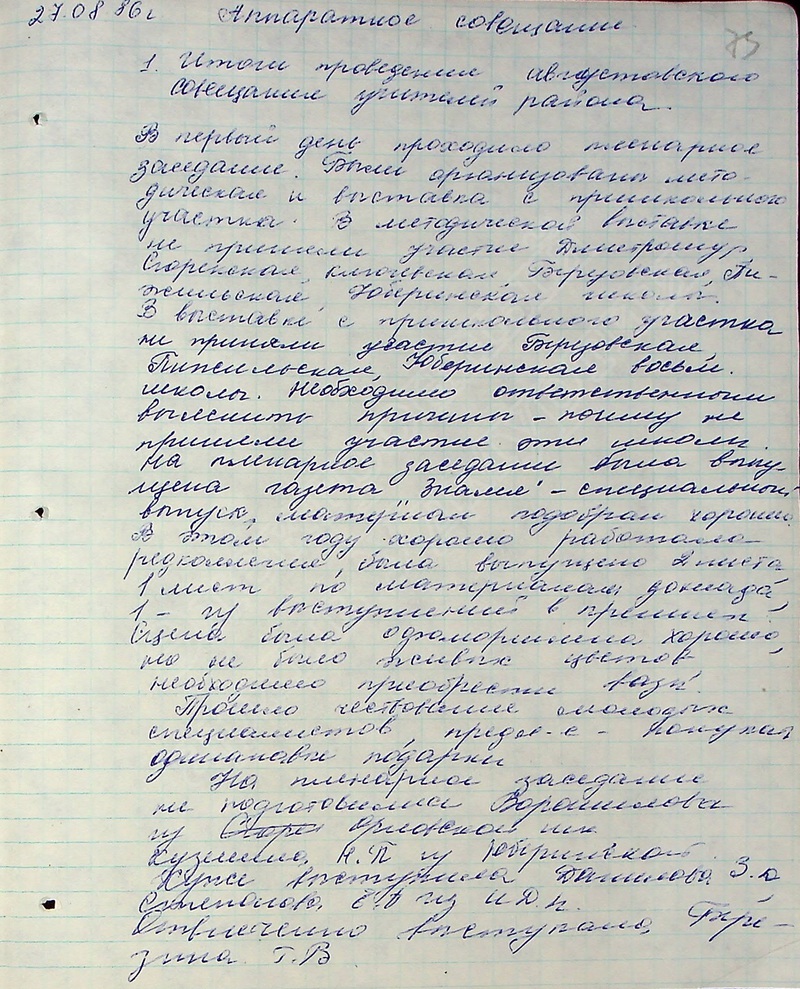 27.08 86г Аппаратное совещание
75
1. Итоги проведения августовского
совещания учителей района.
В первый день проходило пленарное
заседание. Были организованы мето-
дическая и выставка с пришкольного
участка. В методической выставке
не приняли участие
Ключевская, Березовская, Пи-
жильская, Юберинская школы.
В выставке с пришкольного участка
не приняли участие Березовская,
Пижильская, Юберинская восьм.
школы. Необходимо ответственным
выяснить причины – почему не
приняли участие эти школы.
На пленарное заседание была выпу-
щена газета "Знамя" – специальный
выпуск, материал подобран хорошо.
В этом году хорошо работала
редколлегия, было выпущено 2 листа
1 лист по материалам доклада
1 – из выступлений в прениях.
Сцена была оформлена хорошо,
но не было живых цветов
необходимо приобрести вазы.
Прошло чествование молодых
специалистов, предл-е – покупать
одинаковые подарки
На пленарное заседание
не подготовились Ворошилова
из Орловской шк
Кузьмина Н.П из Юберинской.
Хуже выступила Данилова З.
Степанова Е.П из И.Д.Н.
Отвлеченно выступала Бере-
зина Т.В